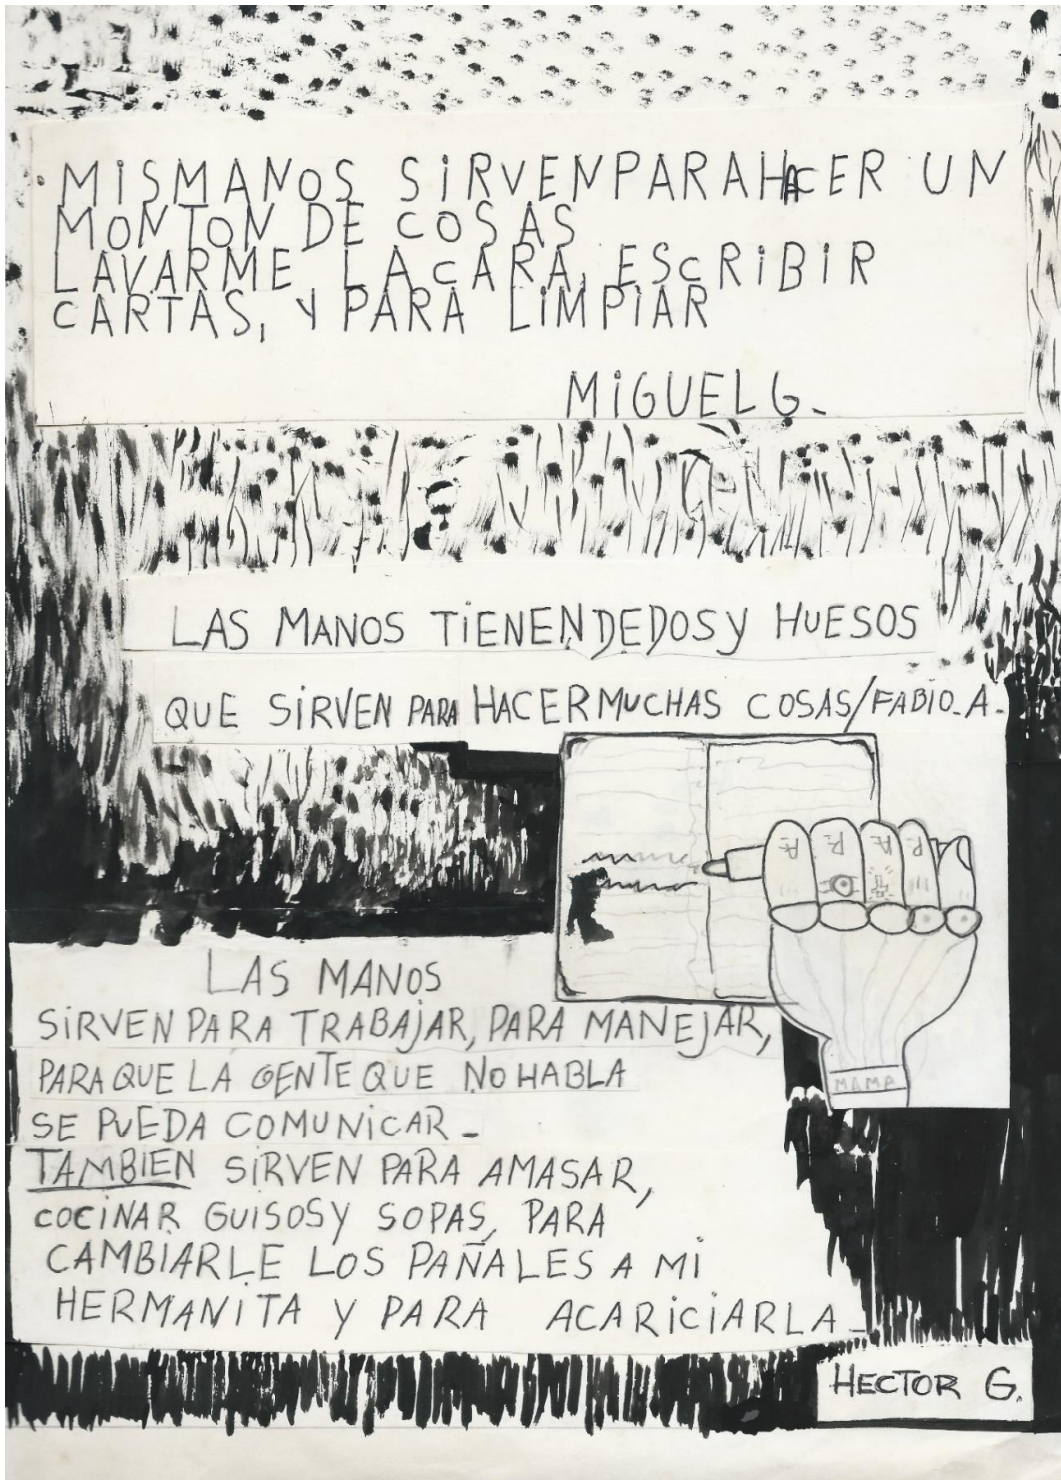 MISMANOS SiRVENPARAHACER UN
MONTON DE COSAS
LAVARME LACARA, ESCRIBIR
CARTAS, Y PARA LiMPiAR
MiGUEL G-
LAS MANOS TiENEN DEDOS Y HUESOS
QUE SiRVEN PARA HACER MUCHAS COSAS/FABIO-A-
LAS MANOS
SiRVEN PARA TRABAJAR, PARA MANEJAR,
PARA QUE LA GENTE QUE NO HABLA
SE PUEDA COMUNiCAR-
TAMBIEN SIRVEN PARA AMASAR,
COCiNAR GUiSOS Y SOPAS, PARA
CAMBiARLE LOS PAÑALES A Mi
HERMANiTA Y PARA ACARiCiARLA-
HECTOR G.
MAMA